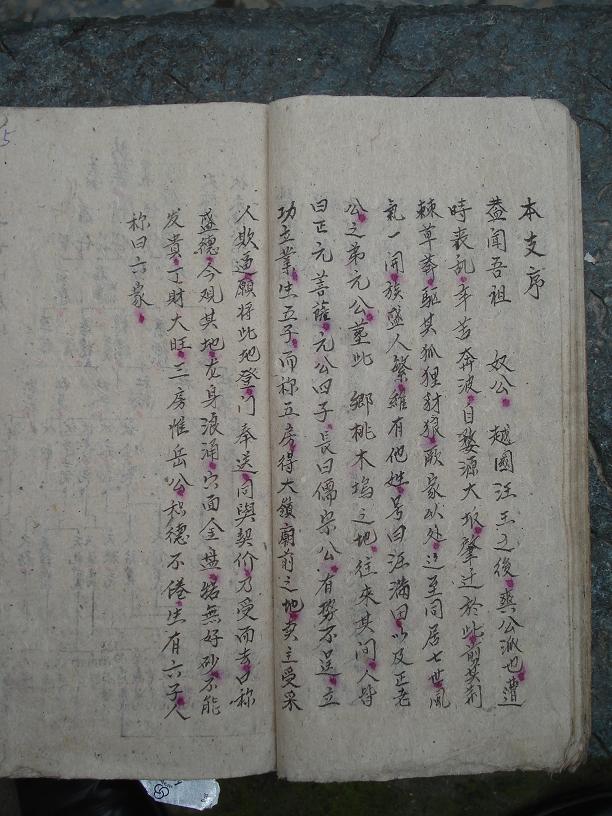 本支序
蓋聞吾祖 奴公 越國汪王之後爽公派也遭
時衰乱辛苦奔波自婺源大坂肇迁於此剪其荆
棘草莽驅其狐狸豺狼厥家以处迨至同居七世風
氣一開族盛人繁雖有他姓号曰汪滿田以及正老
公之弟元公墓此 鄉桃木塢之地往來其间人皆
曰正元菩薩元公四子長曰儒宗公有势不逞立
功立業生五子而称五房得大嶺廟前之地卖主受采
人欺逼願将此地登门奉送同與契价方受而去口称
盛德今观其地龙身浪涌穴面全盘结無好砂不能
发貴丁財大旺三房惟岳公德不倦生有六子人
称曰六家
5